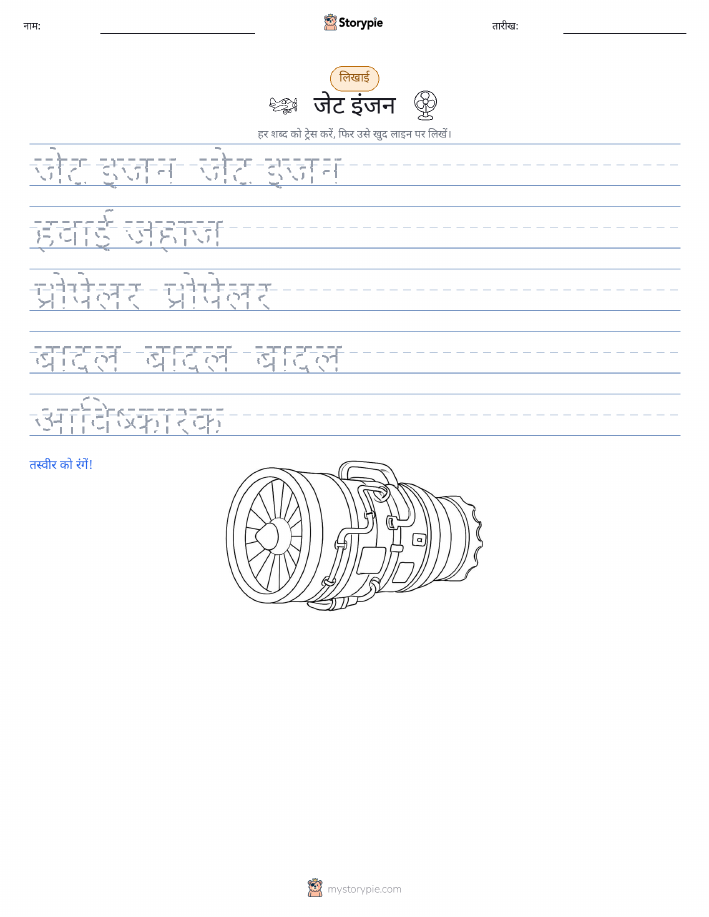 नाम:
Storypie
तारीख:
लिखाई
जेट इंजन
हर शब्द को ट्रेस करें, फिर उसे खुद लाइन पर लिखें।
जेट इंजन जेट इंजन
हवाई जहाज
प्रोपेलर प्रोपेलर
बादल बादल बादल
आविष्कारक
तस्वीर को रंगें!
mystorypie.com